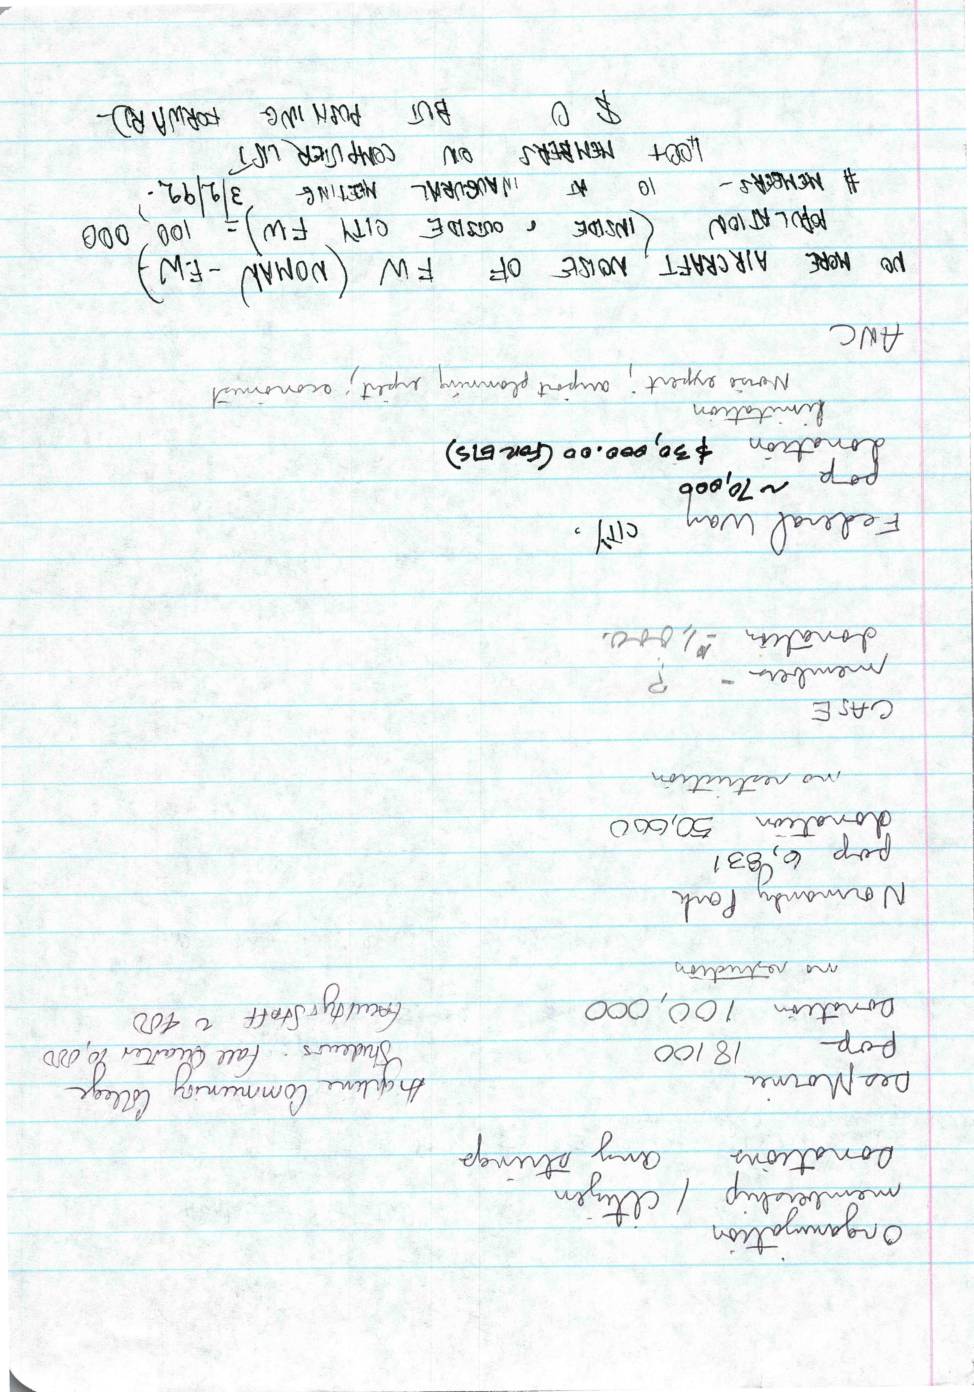 Organization
membership / citizen
Donations any strings
Des Moines
pop 18100
Donation 100,000
no restriction
Highline Community College
Students: Fall Quarter 10,000
Faculty + Staff ~ 400
Normandy Park
pop 6,831
donation 50,000
no restriction
CASE
members - ?
donation - 1,000.
Federal Way CITY.
pop ~70,000
donation $30,000.00 (FOR EIS)
limitation
Noise expert; airport planning expert; economist
ANC
NO MORE AIRCRAFT NOISE OF FW (NOMAN-FW)
POPULATION (INSIDE & OUTSIDE CITY FW) = 100,000
# MEMBERS - 10 AT INAUGURAL MEETING 3/2/92.
1,00+ MEMBERS ON COMPUTER LIST
$ 0 BUT PUSHING FORWARD-